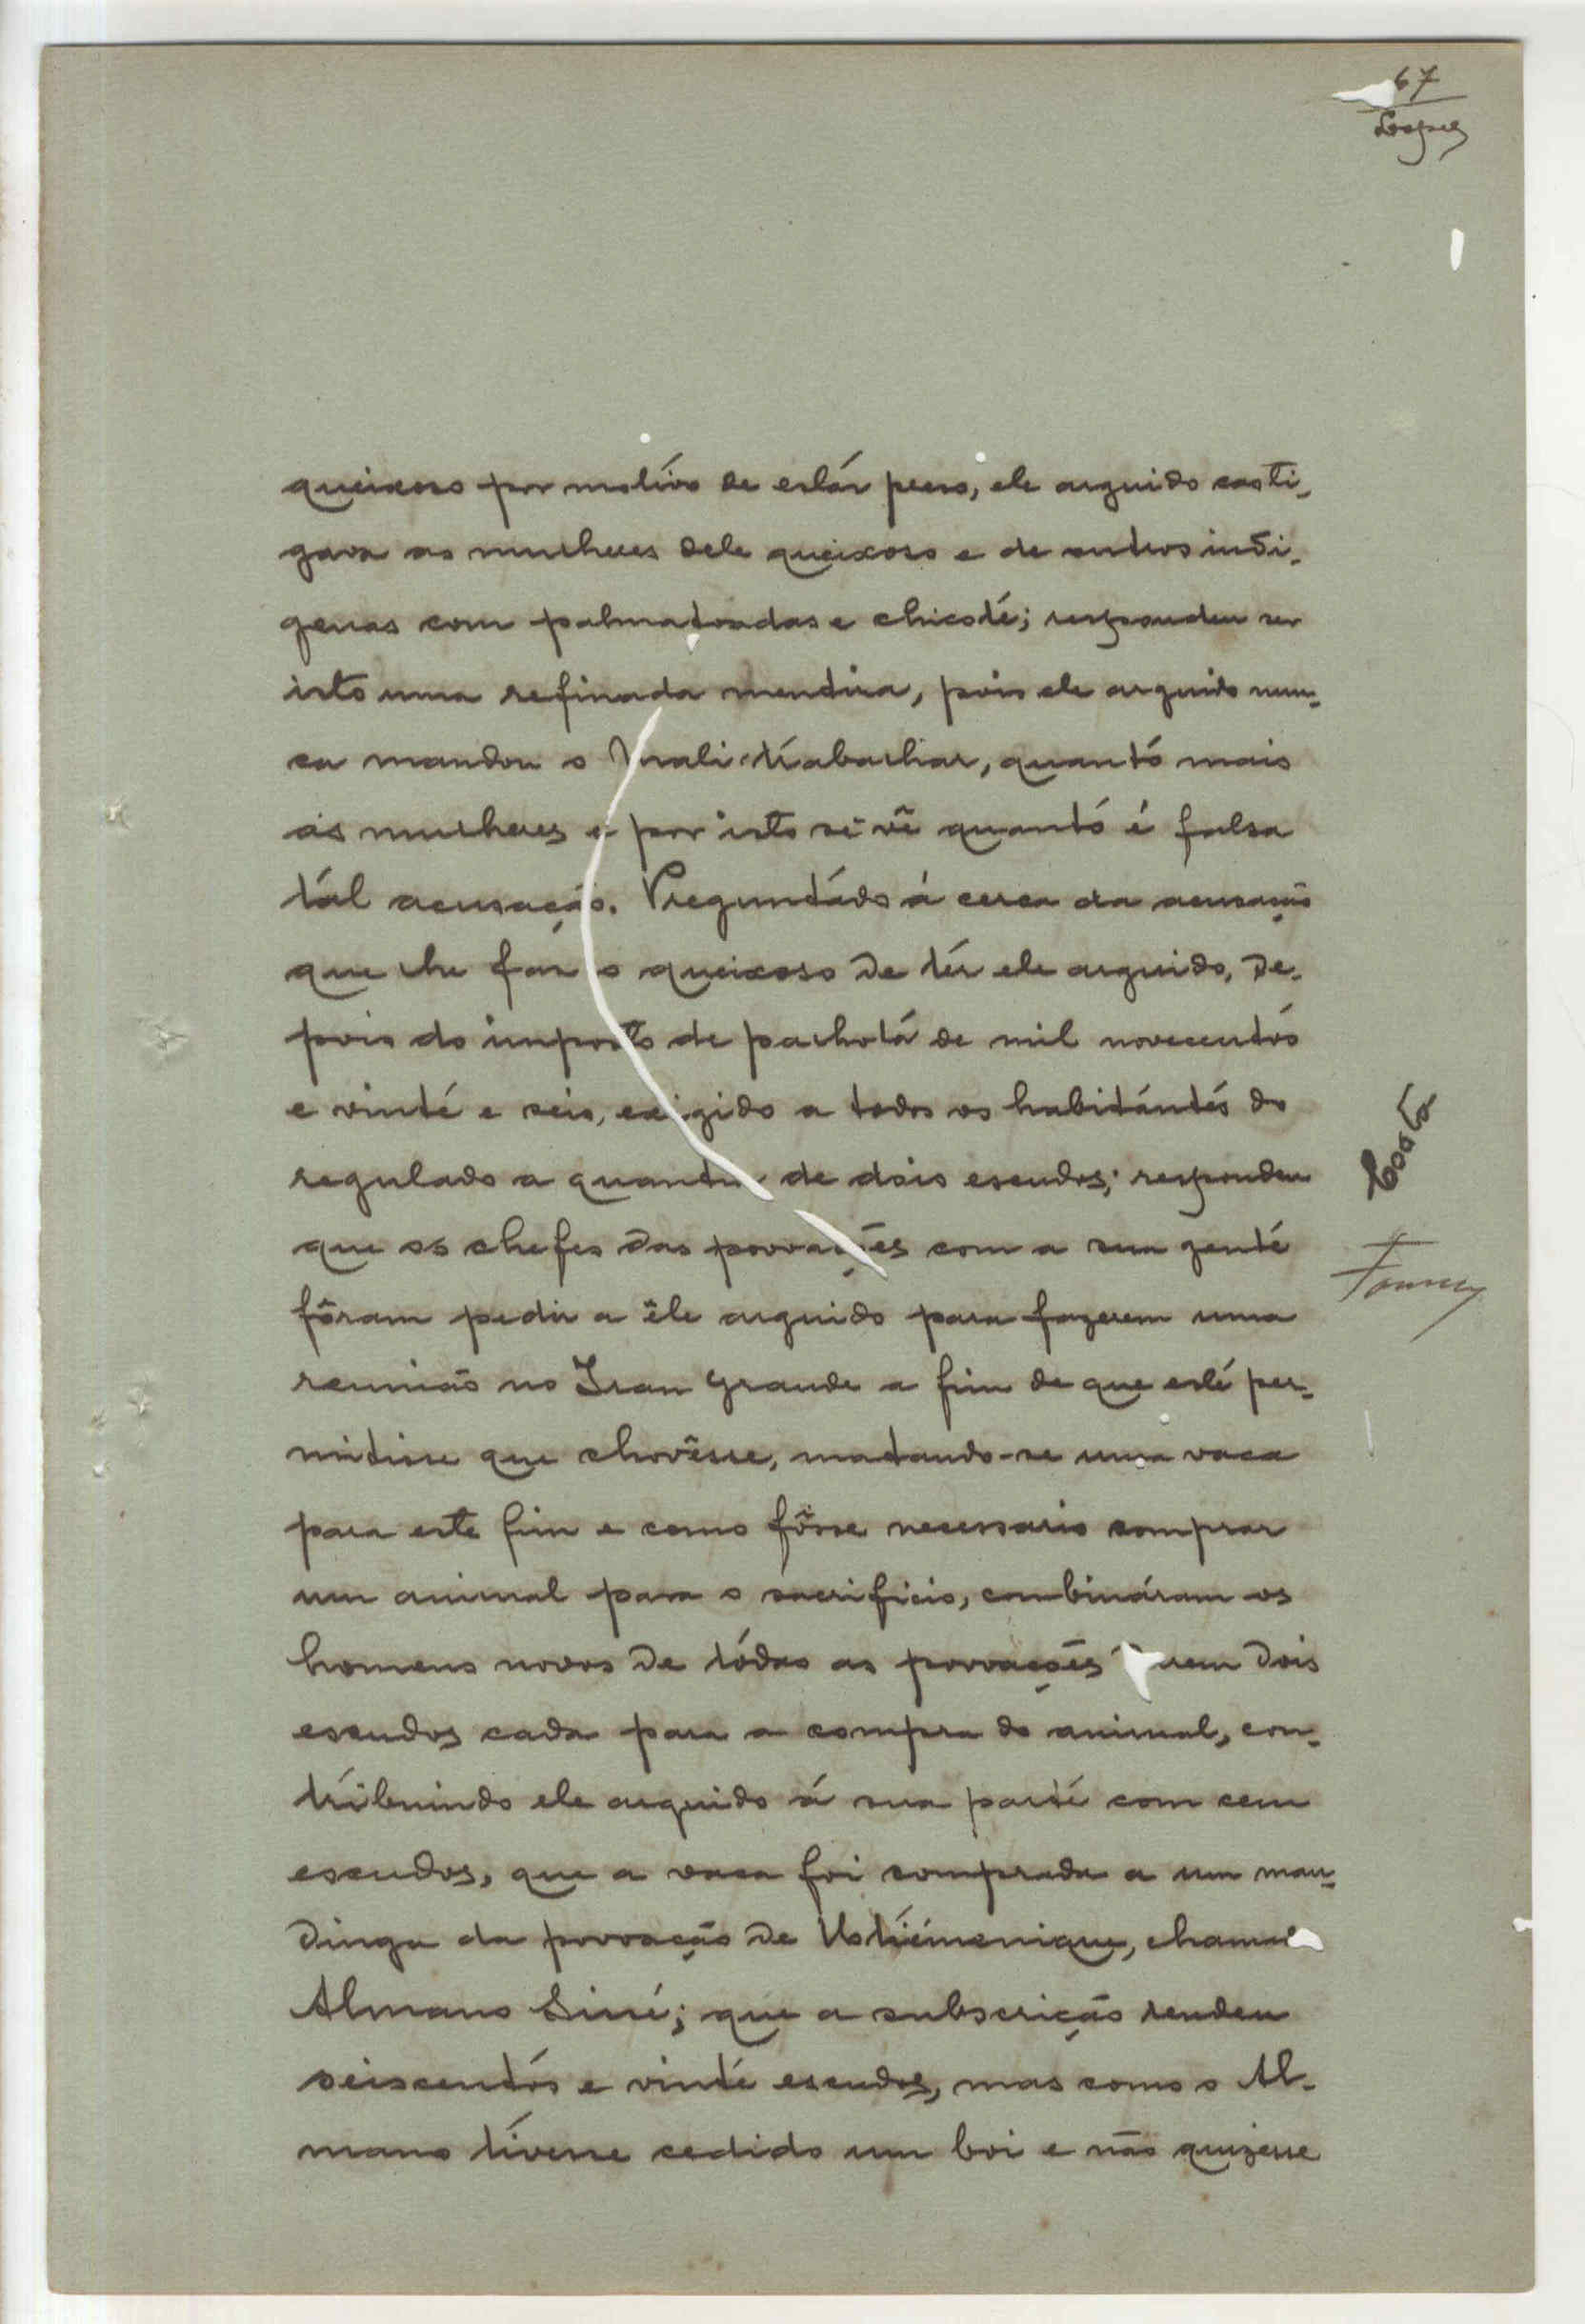 67
Lopes
queixoso por motivo de estár preso, ele arguido casti-
gava as mulheres dele queixoso e de outros indi-
genas com palmatoadas e chicote; respondeu ser
isto uma refinada mentira, pois ele arguido nun-
ca mandou o Mali trabalhar, quanto mais
ás mulheres e por isto se vê quanto é falsa
tál acusação. Preguntádo á cerca da acusação
que lhe faz o queixoso de têr ele arguido, de-
pois do imposto de palhota de mil novecentos
e vinte e seis, exigido a todos os habitántes do
regulado a quantia de dois escudos; respondeu
que os chefes das povoações com a sua gente
fôram pedir a êle arguido para fazerem uma
reunião no Iran Grande a fim de que este per-
mitisse que chovêsse, matando-se uma vaca
para este fim e como fôsse necessario comprar
um animal para o sacrificio, combináram os
homens novos de tódas as povoações rem dois
escudos cada para a compra do animal, con-
tribuindo ele arguido á sua parte com cem
escudos, que a vaca foi comprada a um man-
dinga da povoação de chama
Almano Sissé; que a subscrição rendeu
seiscentos e vinte escudos, mas como o Al-
mano tivesse cedido um boi e não quizesse
Costa